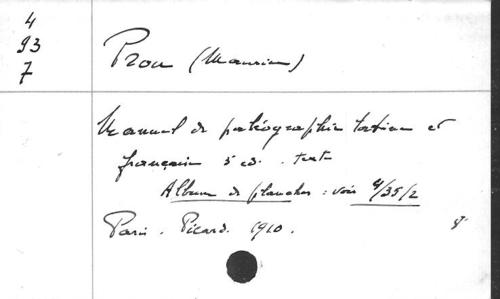 4
93
7
Prou (Maurice)
Manuel de paléographie latine et
française 3 ed. texte
Album de planches : voir 4/35/2
Paris. Picard. 1910. 8°